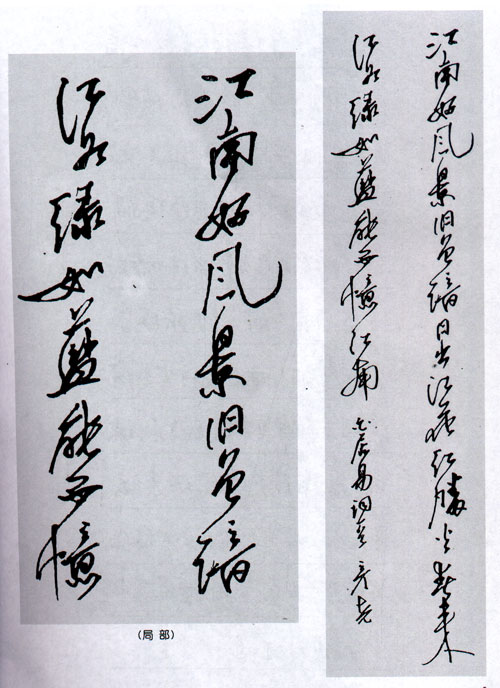 江南好风景旧曾谙日出江花红胜火春来
江水绿如蓝能不忆江南 白居易词
江南好风景旧曾谙
江水绿如蓝能不忆
(局部)